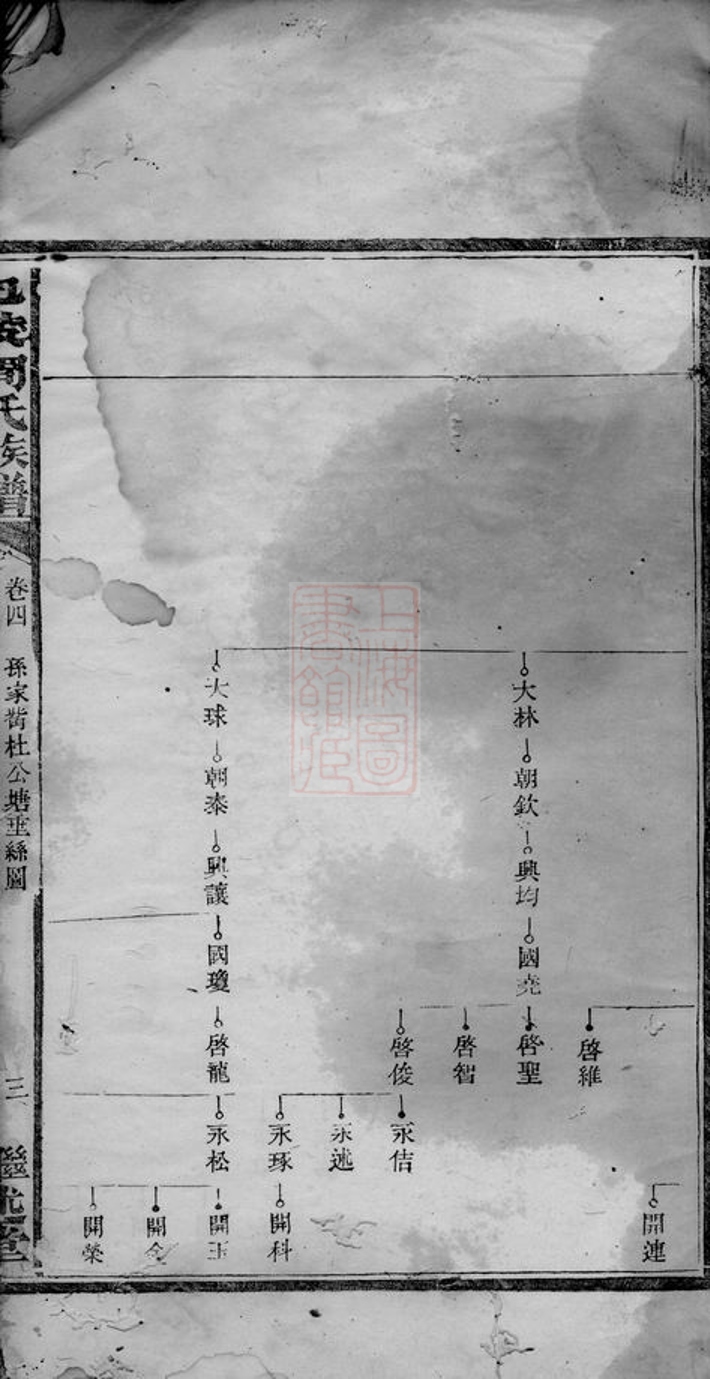 大林
朝欽
興均
國堯
啓維
啓聖
啓智
啓俊
永佶
永述
永琢
開連
開科
大球
朝泰
興讓
國瓊
啓龍
永松
開玉
開金
開榮
周氏族譜
卷四
孫家嘴杜公塘垂絲圖
三
繼述堂
上海圖書館藏